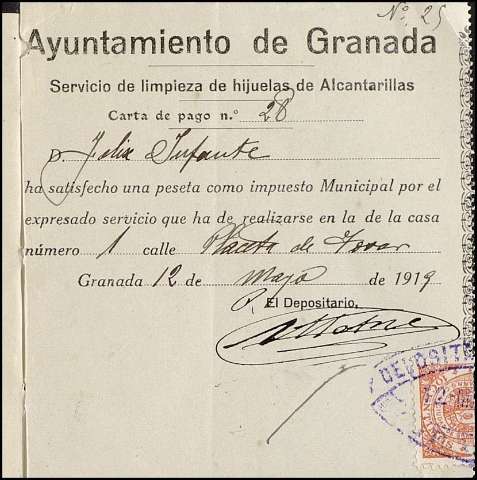 Nº. 25
Ayuntamiento de Granada
Servicio de limpieza de hijuelas de Alcantarillas
Carta de pago n.º 28
D. Felix Infante
ha satisfecho una peseta como impuesto Municipal por el
expresado servicio que ha de realizarse en la de la casa
número 1 calle Placeta de Tovar
Granada 12 de Mayo de 1919
P. El Depositario,
DEPOSIT
12